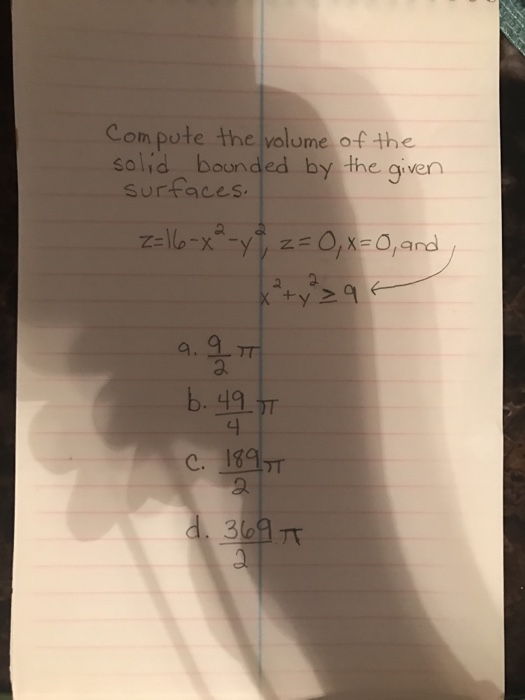 Compute the volume of the
solid bounded by the given
surfaces.
z=16-x²-y², z=0, x=0, and
x²+y²≥9
a. 9/2 π
b. 49/4 π
c. 189/2 π
d. 369/2 π